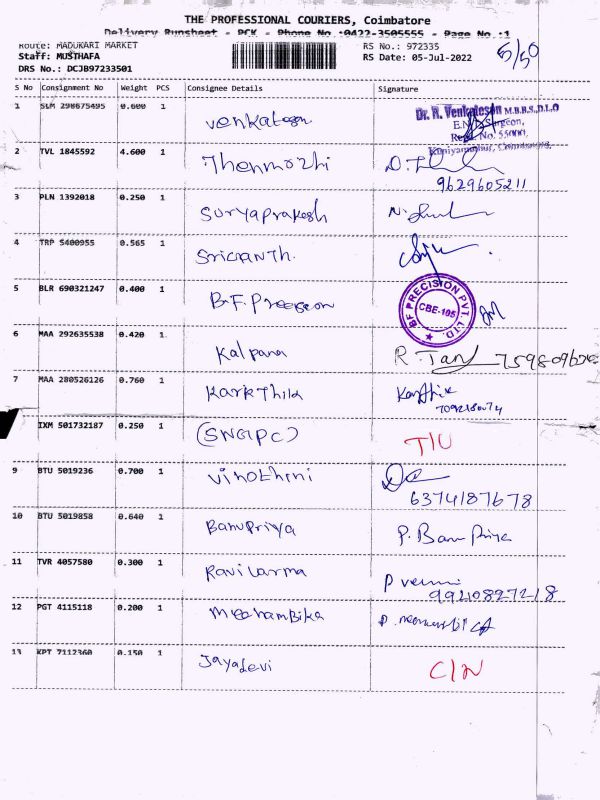 THE PROFESSIONAL COURIERS, Coimbatore
Delivery Runsheet - PCK - Phone No :0422-3505555 - Page No :1
Route: MADUKARI MARKET
Staff: MUSTHAFA
DRS No.: DCJB97233501
RS No.: 972335
RS Date: 05-Jul-2022
5/50
S No Consignment No Weight PCS Consignee Details Signature
1 SLM 290675495 0.600 1 Venkatesn
Dr. R. Venkatesan M.B.B.S.,D.L.O
E.N.T. Surgeon,
Regd. No. 55000,
Kuniyamuthur, Coimbatore.
2 TVL 1845592 4.600 1 Thenmozhi
9629605211
3 PLN 1392018 0.250 1 Suryaprakesh
4 TRP 5400955 0.565 1 Sricranth.
5 BLR 690321247 0.400 1 B.F. Preeseon
BF PRECISION PVT. LTD.
CBE-105
6 MAA 292635538 0.420 1 Kalpana
7 MAA 280526126 0.760 1 Karkthik Karthik
IXM 501732187 0.250 1 (SNGPC) TIU
9 BTU 5019236 0.700 1 Vinothini
6374187678
10 BTU 5019858 0.640 1 Banupriya P. Banu Priya
11 TVR 4057580 0.300 1 Ravilarma
12 PGT 4115118 0.200 1 Meenambika
13 KPT 7112360 0.150 1 Jayadevi CIN